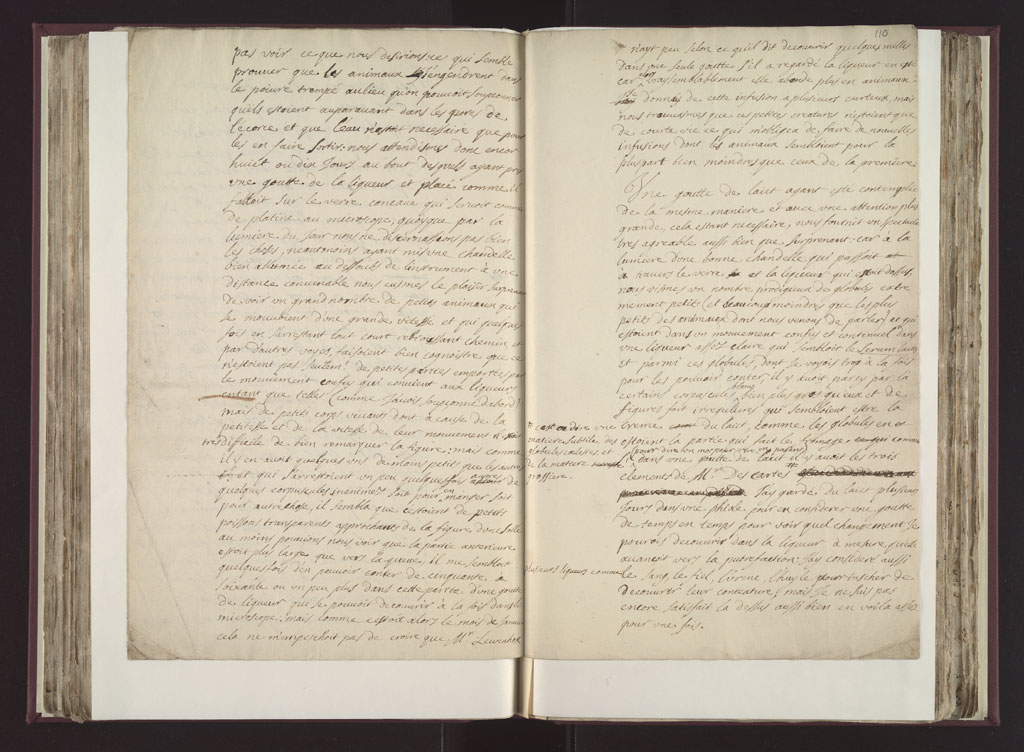 pas voir ce que nous desirions: ce qui semble
prouver que les animaux s'engendrent dans
le poivre trempé au lieu qu'on pouvoit soupconner
qu'ils estoient auparavant dans les pores de
l'ecorce et que l'eau n'estoit necessaire que pour
les en faire sortir: nous attendismes donc encor
huict ou dix jours au bout desquels ayant pris
une goutte de la liqueur et placé comme il
falloit sur le verre concave qui servoit comme
de platine au microscope, quoyque par la
lumiere du jour nous ne discernassions pas bien
les choses, neantmoins ayant mis une chandelle
bien allumée au dessous de l'instrument à une
distance convenable nous eusmes le plaisir surprenant
de voir un grand nombre de petits animaux qui
se mouvoient d'une grande vitesse et qui quelque
fois en s'arrestant tout court rebroussant chemin, et
par d'autres voyes, faisoient bien cognoistre que ce
n'estoient pas seulem.t de petites parties emportées par
le mouvement confus qui convient aux liqueurs
entant que telles (comme j'avois soupconné d'abord)
mais de petits corps vivants dont à cause de la
petitesse et de la vitesse de leur mouvement il estoit
tres difficile de bien remarquer la figure; mais comme
il y en avoit quelques uns de moins petits que les autres
et qui s'arrestoient un peu quelques fois autour de
quelques corpuscules inanimez soit pour en manger soit
pour autre chose, il sembla que c'estoient de petits
poissons transparents approchants de la figure d'une solle
au moins pouvions nous voir que la partie anterieure
estoit plus large que vers la queue, il me sembloit
quelques fois d'en pouvoir conter de cinquante, à
soixante ou un peu plus dans cette partie d'une goutte
de liqueur qui se pouvoit decouvrir à la fois dans le
microscope: mais comme c'estoit alors le mois de
cela ne m'empeschoit pas de croire que M.r Leuwenhoek
110
n'ayt peu selon ce qu'il dit decouvrir quelques milles
dans une seule goutte s'il a regardé la liqueur en esté
car vraysemblablement elle abonde plus en animaux.
donnés de cette infusion a plusieurs curieux, mais
nous trouvasmes que ces petites creatures n'estoient que
de courte vie ce qui m'obligea de faire de nouvelles
infusions dont les animaux sembloient pour la
pluspart bien moindres que ceux de la premiere
Une goutte de laict ayant esté contemplée
de la mesme maniere et avec une attention plus
grande, cela estant necessaire, nous fournit un spectacle
tres agreable aussi bien que surprenant: car à la
lumiere d'une bonne chandelle qui passoit
à travers le verre et la liqueur qui estoit dessus,
nous vismes un nombre prodigieux de globules extre
mement petits (et beaucoup moindres que les plus
petits des animaux dont nous venons de parler) et qui
estoient dans un mouvement confus et continuel dans
une liqueur assez claire qui sembloit le serum lactis
et parmi ces globules, dont je voyois trop à la fois
pour les pouvoir conter, il y avoit par cy par la
certains corpuscules bien plus gros qu'eux et de
figures fait irregulieres qui sembloient estre la
creme du laict, comme les globules en
estoient la partie qui fait le fromage,
(pour dire un mot pour rire en passant)
dans une goutte de laict il y avoit les trois
elements de M.r Des cartes
c'est a dire une
matiere subtile des
globules celestes, et
de la matiere
grossiere.
J'ay gardé du laict plusieurs
jours dans une phiole pour en considerer une goutte
de temps en temps pour voir quel changement je
pourois decouvrir dans la liqueur à mesure qu'elle
avancoit vers la putrefaction: j'ay consideré aussi
plusieurs liqueurs comme
le sang, le fiel, l'urine, l'huyle pour tascher de
decouvrir leur contexture; mais je ne suis pas
encore satisfait la dessus aussi bien en voila assez
pour une fois.